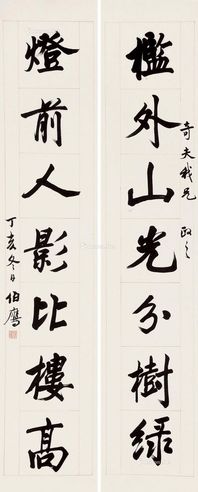 檻外山光分樹緑
奇夫我兄 政之
燈前人影比樓高
丁亥冬日 伯鷹